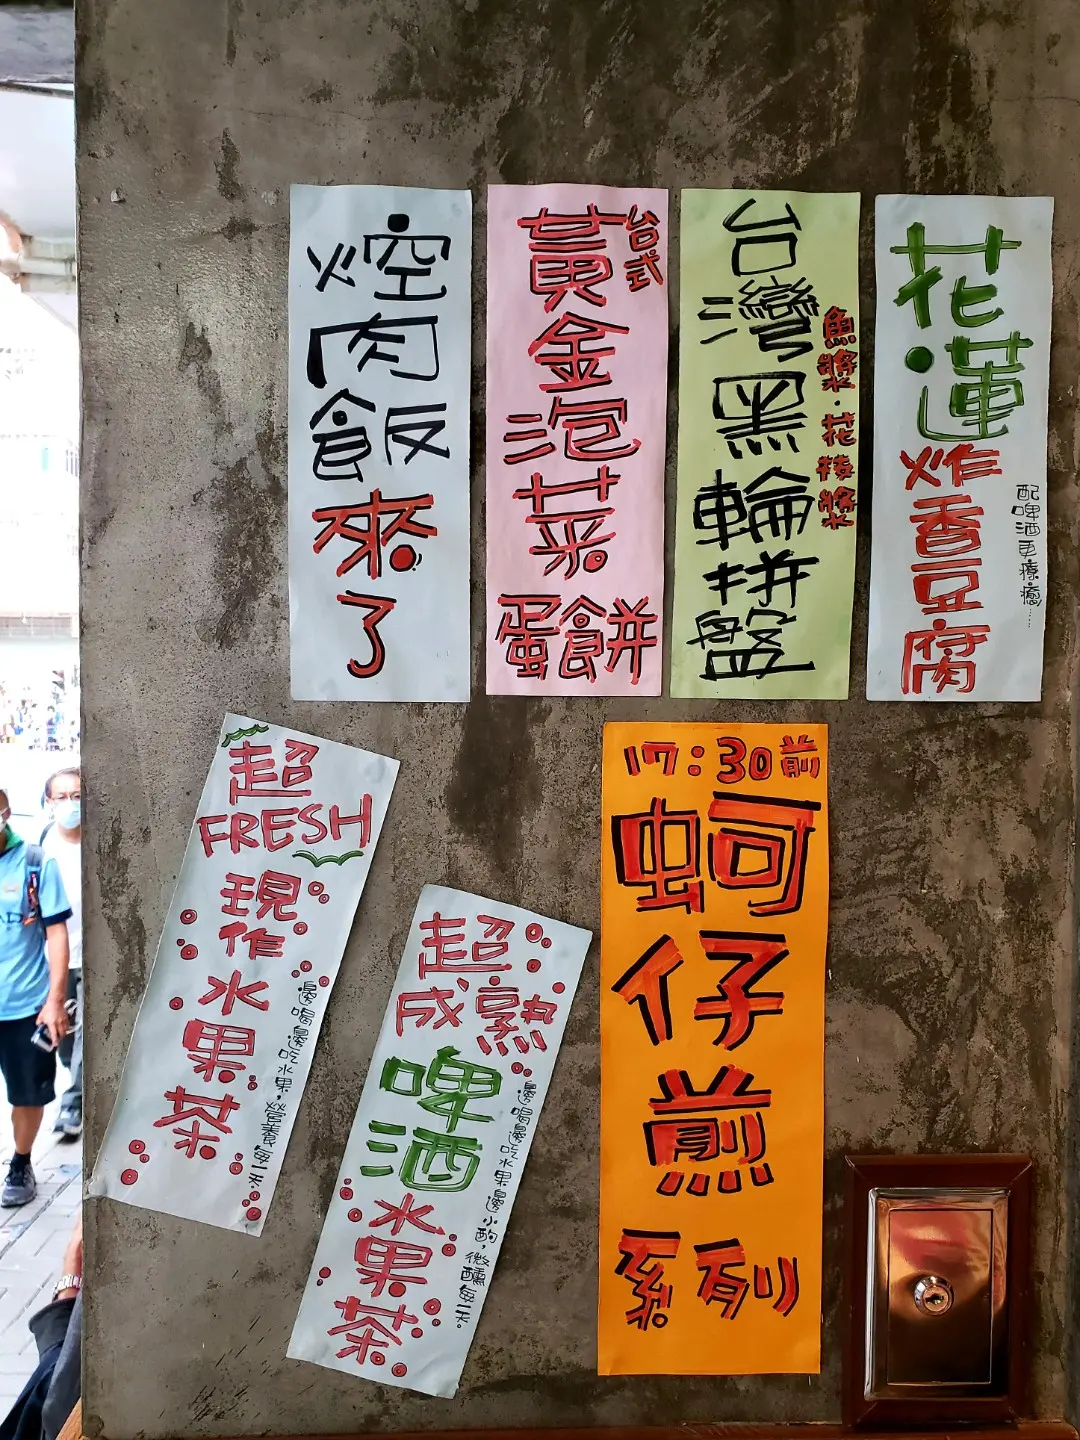 焢肉飯來了
台式
黃金泡菜蛋餅
台灣黑輪拼盤
魚漿·花枝漿
花蓮炸香豆腐
配啤酒更療癒……
超FRESH
現作水果茶
邊喝邊吃水果,營養每一天。
超成熟
啤酒水果茶
邊喝邊吃水果邊小酌,微醺每一天。
17:30前
蚵仔煎
系列